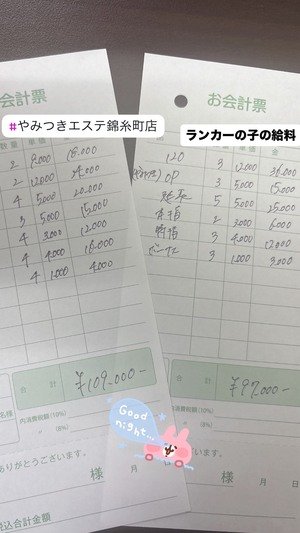 会計票
#やみつきエステ錦糸町店
数量 単価
2 9,000 18,000
2 12,000 24,000
4 5,000 20,000
3 5,000 15,000
4 3,000 12,000
4 4,000 16,000
4 1,000 4,000
合計 ¥109,000-
内消費税額(10%)
〃 (8%)
ありがとうございます。
様 月
税込合計金額
お会計票
ランカーの子の給料
120 3 12,000 36,000
OP 3 5,000 15,000
5 5,000 25,000
本指 2 3,000 6,000
3 4,000 12,000
ボーナス 3 1,000 3,000
合計 ¥97,000-
内消費税額(10%)
〃 (8%)
ございます。
様 月 日
税込合計金額
Good night...